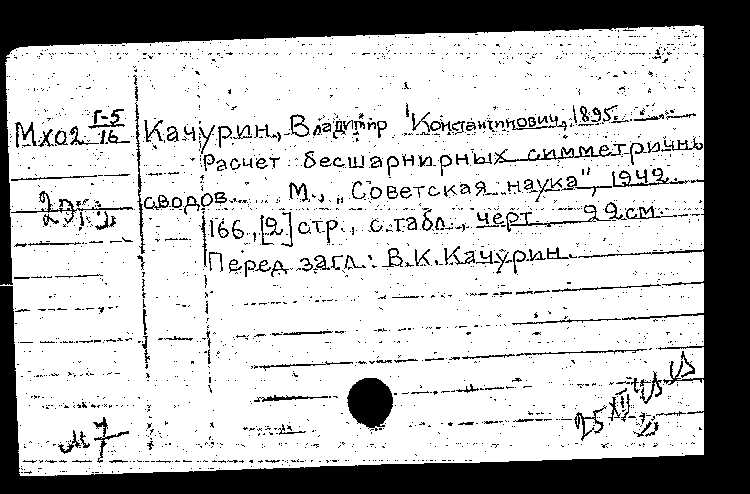 Мх02 Г-5/16 Качурин, Владимир Константинович, 1895.
Расчет бесшарнирных симметричнь
сводов. М., „Советская наука", 1949.
166, [2] стр., с табл., черт 22 см.
Перед загл.: В.К.Качурин.
25 XII
м 7